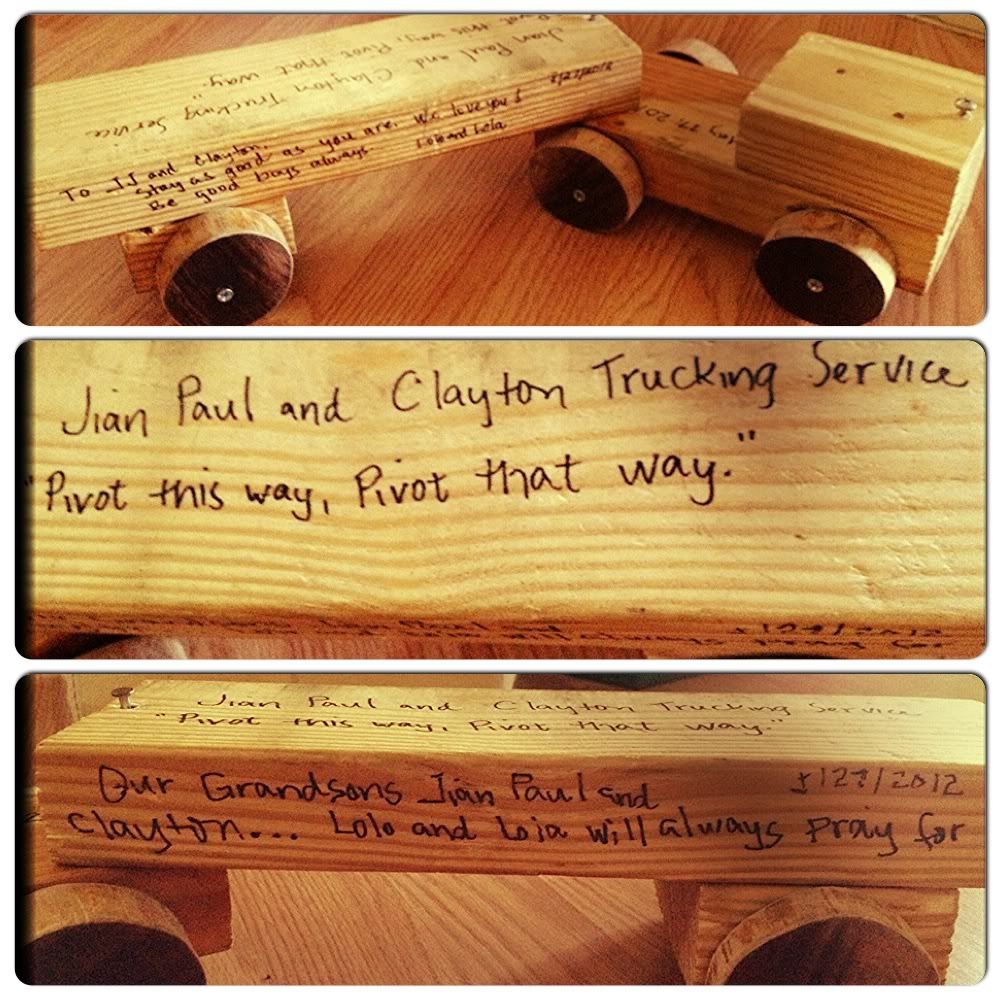 Pivot this way, Pivot that way."
Jian Paul and Clayton Trucking Service
5/27/2012
To JJ and Clayton,
Stay as good as you are. We love you!
Be good boys always. Lolo and Lola
May 27, 20
Jian Paul and Clayton Trucking Service
"Pivot this way, Pivot that way."
Jian Paul and Clayton Trucking Service
"Pivot this way, Pivot that way."
Our Grandsons Jian Paul and 5/27/2012
Clayton... Lolo and Lola will always pray for